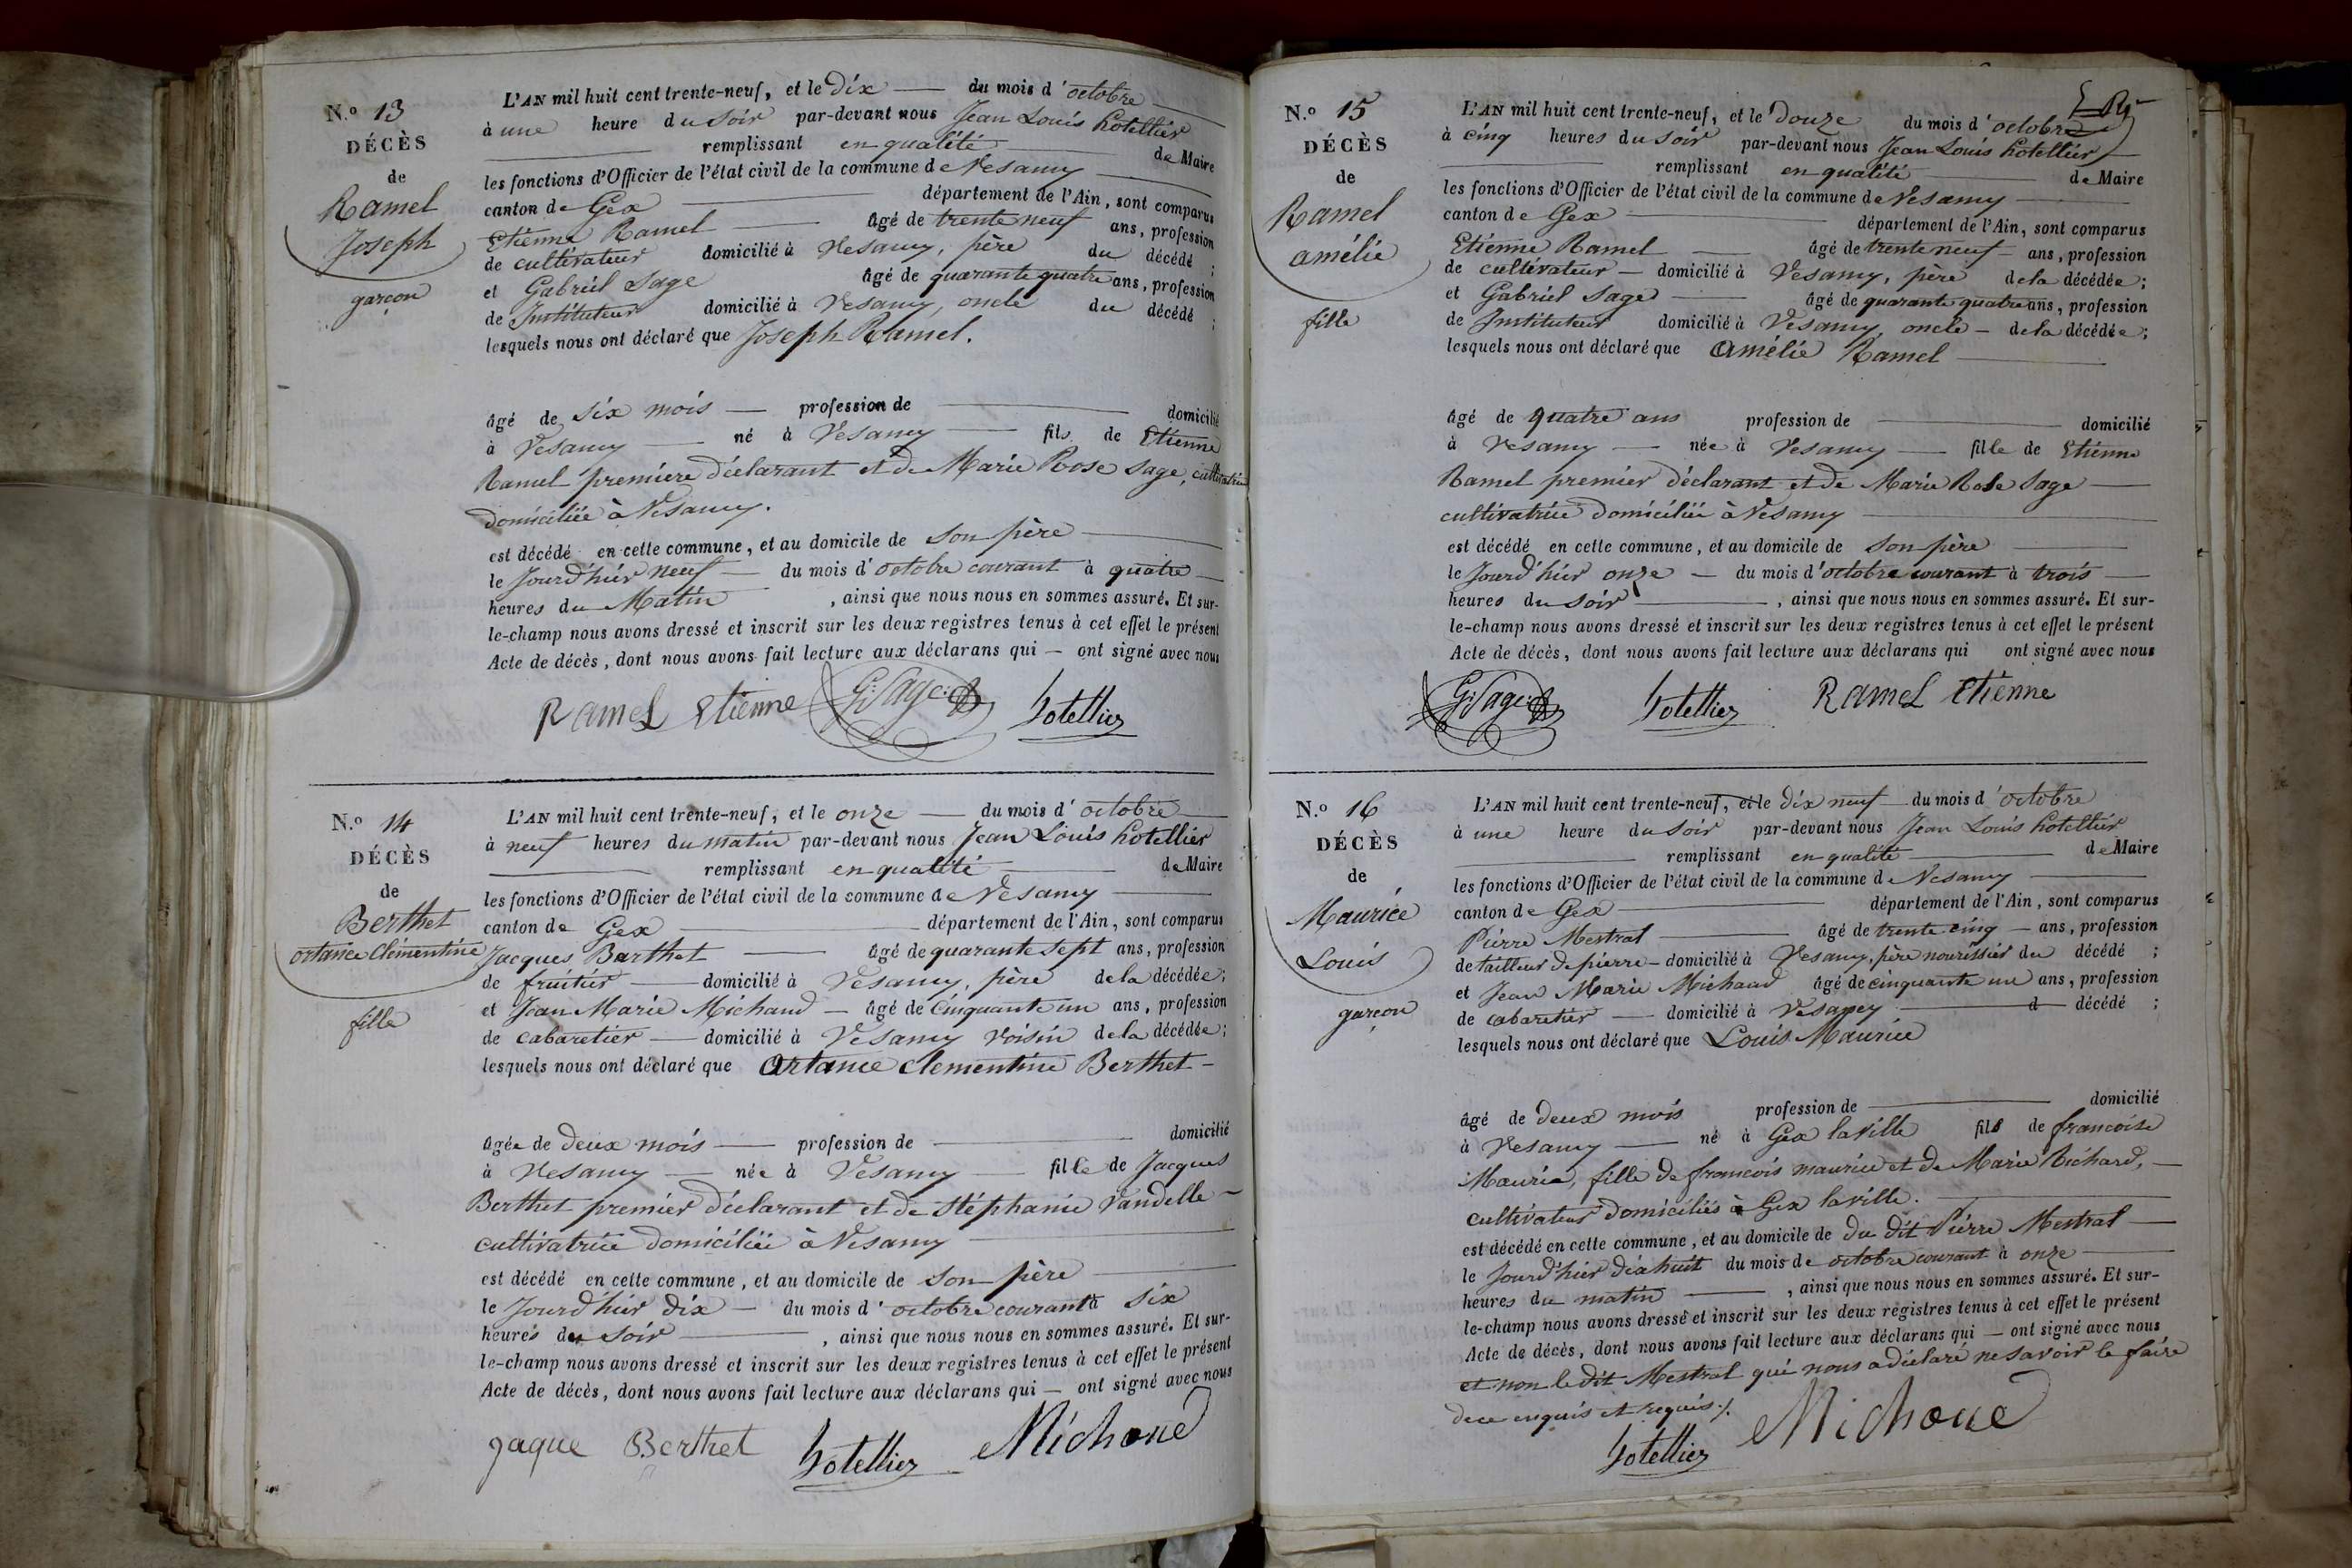 N.º 13
DÉCÈS
de
Ramel
Joseph
garçon
L'AN mil huit cent trente-neuf, et le Dix du mois d' octobre
à une heure du soir par-devant nous Jean Louis hotellier
remplissant en qualité de Maire
les fonctions d'Officier de l'état civil de la commune de Vesancy
canton de Gex département de l'Ain, sont comparus
Etienne Ramel âgé de trente neuf ans, profession
de cultivateur domicilié à Vesancy, père du décédé ;
et Gabriel Sage âgé de quarante quatre ans, profession
de Instituteur domicilié à Vesancy, oncle du décédé ;
lesquels nous ont déclaré que Joseph Ramel.
âgé de six mois profession de domicilié
à Vesancy né à Vesancy fils de Etienne
Ramel premiere déclarant et de Marie Rose Sage, cultivatrice
domiciliée à Vesancy.
est décédé en cette commune, et au domicile de son père
le Jourd'hier neuf du mois d' octobre courant à quatre
heures du Matin , ainsi que nous nous en sommes assuré. Et sur-
le-champ nous avons dressé et inscrit sur les deux registres tenus à cet effet le présent
Acte de décès, dont nous avons fait lecture aux déclarans qui — ont signé avec nous
Ramel Etienne G. Sage hotellier
N.º 14
DÉCÈS
de
Berthet
ortance Clémentine
fille
L'AN mil huit cent trente-neuf, et le onze du mois d' octobre
à neuf heures du matin par-devant nous Jean Louis hotellier
remplissant en qualité de Maire
les fonctions d'Officier de l'état civil de la commune de Vesancy
canton de Gex département de l'Ain, sont comparus
Jacques Berthet âgé de quarante sept ans, profession
de fruitier domicilié à Vesancy, père de la décédée ;
et Jean Marie Michaud — âgé de cinquante un ans, profession
de cabaretier domicilié à Vesancy voisin de la décédée ;
lesquels nous ont déclaré que Ortance Clementine Berthet —
âgée de deux mois profession de domicilié
à Vesancy née à Vesancy fille de Jacques
Berthet premier déclarant et de Stéphanie Vandelle —
cultivatrice domiciliée à Vesancy
est décédé en cette commune, et au domicile de son père
le Jourd'hier dix du mois d' octobre courant à six
heures du soir , ainsi que nous nous en sommes assuré. Et sur-
le-champ nous avons dressé et inscrit sur les deux registres tenus à cet effet le présent
Acte de décès, dont nous avons fait lecture aux déclarans qui — ont signé avec nous
Jaque Berthet hotellier Michaud
N.º 15
DÉCÈS
de
Ramel
amélie
fille
L'AN mil huit cent trente-neuf, et le Douze du mois d' octobre
à cinq heures du soir par-devant nous Jean Louis hotellier
remplissant en qualité de Maire
les fonctions d'Officier de l'état civil de la commune de Vesancy
canton de Gex département de l'Ain, sont comparus
Etienne Ramel âgé de trente neuf ans, profession
de cultivateur — domicilié à Vesancy, père de la décédée ;
et Gabriel Sage âgé de quarante quatre ans, profession
de Instituteur domicilié à Vesancy, oncle — de la décédée ;
lesquels nous ont déclaré que Amélie Ramel
âgé de quatre ans profession de domicilié
à Vesancy née à Vesancy fille de Etienne
Ramel premier déclarant et de Marie Rose Sage
cultivatrice domiciliée à Vesancy
est décédé en cette commune, et au domicile de son père
le Jourd'hier onze — du mois d'octobre courant à trois
heures du soir , ainsi que nous nous en sommes assuré. Et sur-
le-champ nous avons dressé et inscrit sur les deux registres tenus à cet effet le présent
Acte de décès, dont nous avons fait lecture aux déclarans qui ont signé avec nous
G. Sage hotellier Ramel Etienne
N.º 16
DÉCÈS
de
Maurice
Louis
garçon
L'AN mil huit cent trente-neuf, et le Dix neuf du mois d' octobre
à une heure du soir par-devant nous Jean Louis hotellier
remplissant en qualité de Maire
les fonctions d'Officier de l'état civil de la commune de Vesancy
canton de Gex département de l'Ain, sont comparus
Pierre Mestral âgé de trente cinq — ans, profession
de tailleur de pierre — domicilié à Vesancy, père nourissier du décédé ;
et Jean Marie Michaud âgé de cinquante un ans, profession
de cabaretier domicilié à Vesancy d décédé ;
lesquels nous ont déclaré que Louis Maurice
âgé de deux mois profession de domicilié
à Vesancy né à Gex la ville fils de francoise
Maurice, fille de francois maurice et de Marie Richard, —
cultivateurs domiciliés à Gex la ville.
est décédé en cette commune, et au domicile de du dit Pierre Mestral
le Jourd'hier dix huit du mois de octobre courant à onze
heures du matin , ainsi que nous nous en sommes assuré. Et sur-
le-champ nous avons dressé et inscrit sur les deux registres tenus à cet effet le présent
Acte de décès, dont nous avons fait lecture aux déclarans qui — ont signé avec nous
et non le dit Mestral qui nous a déclaré ne savoir le faire
de ce enquis et requis ./.
hotellier Michaud